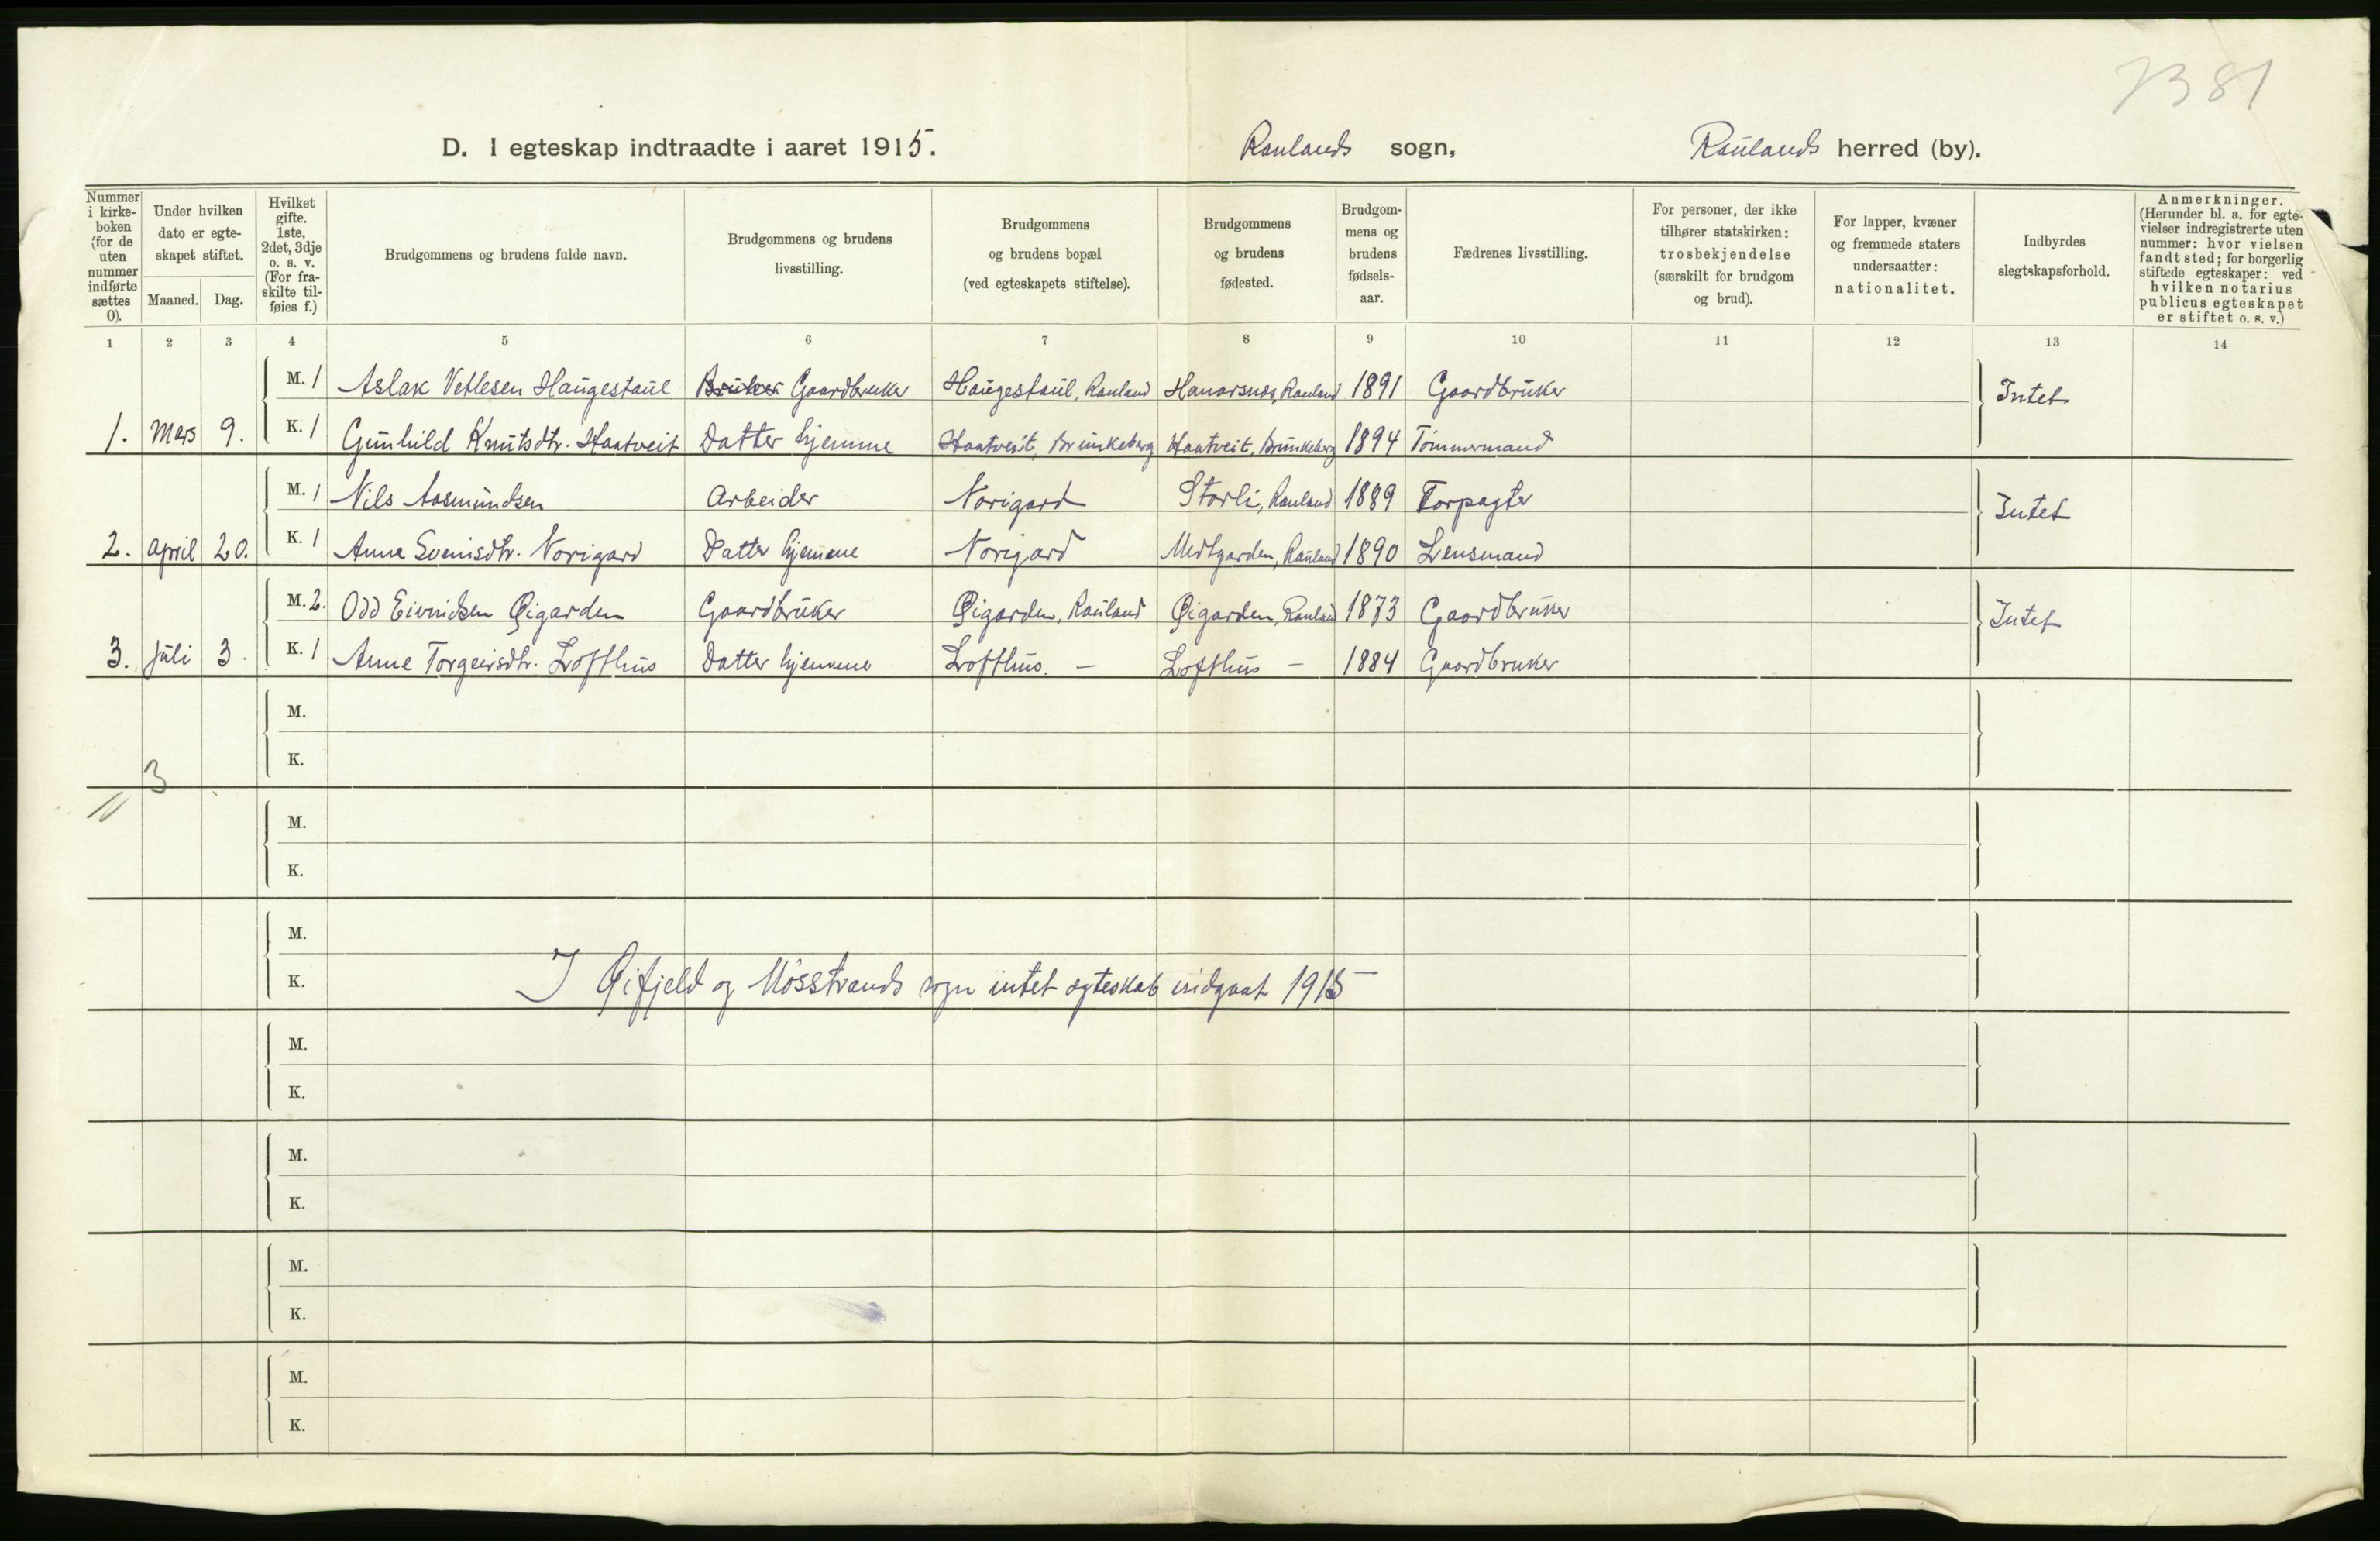 7381
D. I egteskap indtraadte i aaret 1915. Raulands sogn, Raulands herred (by).
Nummer i kirkeboken (for de uten nummer indførte sættes 0). Under hvilken dato er egteskapet stiftet. Maaned. Dag. Hvilket gifte. 1ste, 2det, 3dje o. s. v. (For fraskilte tilføies f.) Brudgommens og brudens fulde navn. Brudgommens og brudens livsstilling. Brudgommens og brudens bopæl (ved egteskapets stiftelse). Brudgommens og brudens fødested. Brudgommens og brudens fødselsaar. Fædrenes livsstilling. For personer, der ikke tilhører statskirken: trosbekjendelse (særskilt for brudgom og brud). For lapper, kvæner og fremmede staters undersaatter: nationalitet. Indbyrdes slegtskapsforhold. Anmerkninger. (Herunder bl. a. for egtevielser indregistrerte uten nummer: hvor vielsen fandt sted; for borgerlig stiftede egteskaper: ved hvilken notarius publicus egteskapet er stiftet o. s. v.)
1 2 3 4 5 6 7 8 9 10 11 12 13 14
M. 1 Aslak Vetlesen Haugestaul Gaardbruker Haugestaul, Rauland Hamarsnes, Rauland 1891 Gaardbruker Intet
1. Mars 9. K. 1 Gunhild Knutsdtr. Haatveit Datter hjemme Haatveit, Brunkeberg Haatveit, Brunkeberg 1894 Tømmermand
M. 1 Nils Aasmundsen Arbeider Norigard Storli, Rauland 1889 Forpagter Intet
2. April 20. K. 1 Anne Sveinsdtr. Norigard Datter hjemme Norigard Midtgarden, Rauland 1890 Lensmand
M. 2. Odd Eivindsen Øigarden Gaardbruker Øigarden, Rauland Øigarden, Rauland 1873 Gaardbruker Intet
3. Juli 3. K. 1 Anne Torgeirsdtr. Lofthus Datter hjemme Lofthus. — Lofthus — 1884 Gaardbruker
M.
K.
3
M.
K.
M.
K. I Øifjeld og Møsstrands sogn intet egteskab indgaat 1915
M.
K.
M.
K.
M.
K.
M.
K.